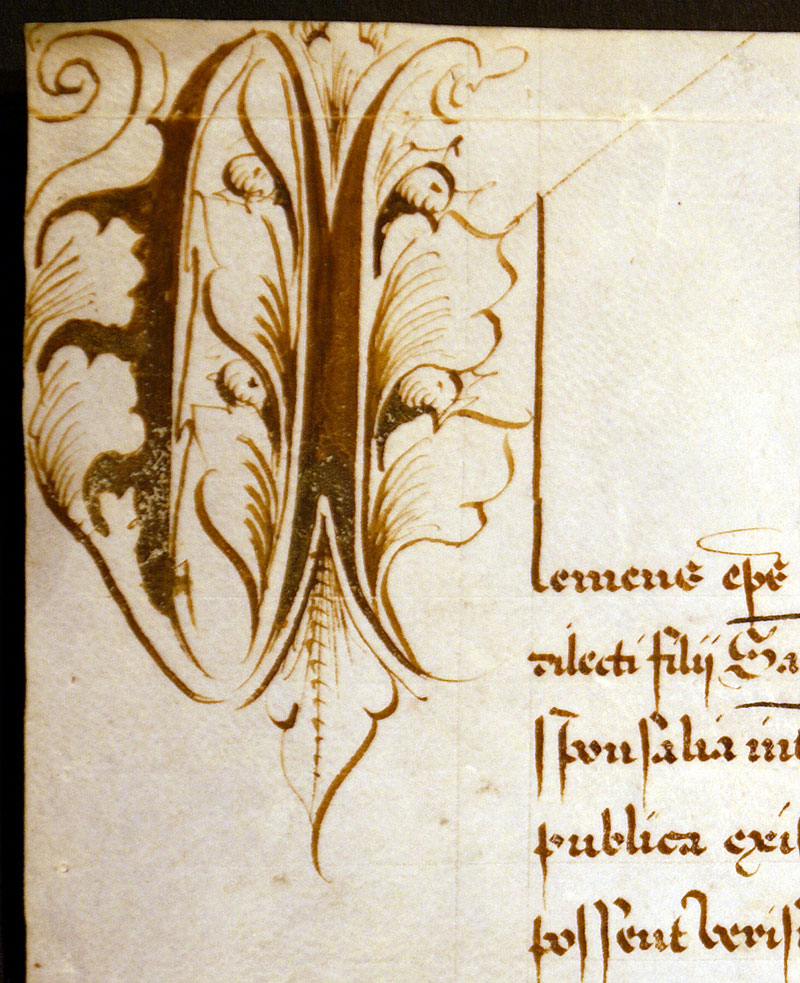 Clemens eps
dilecti filij Sa
sponsalia int
publica exis
possent veris